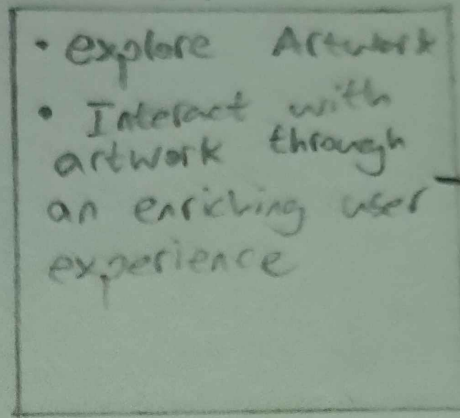 • explore Artwork
• Interact with
artwork through
an enriching user
experience